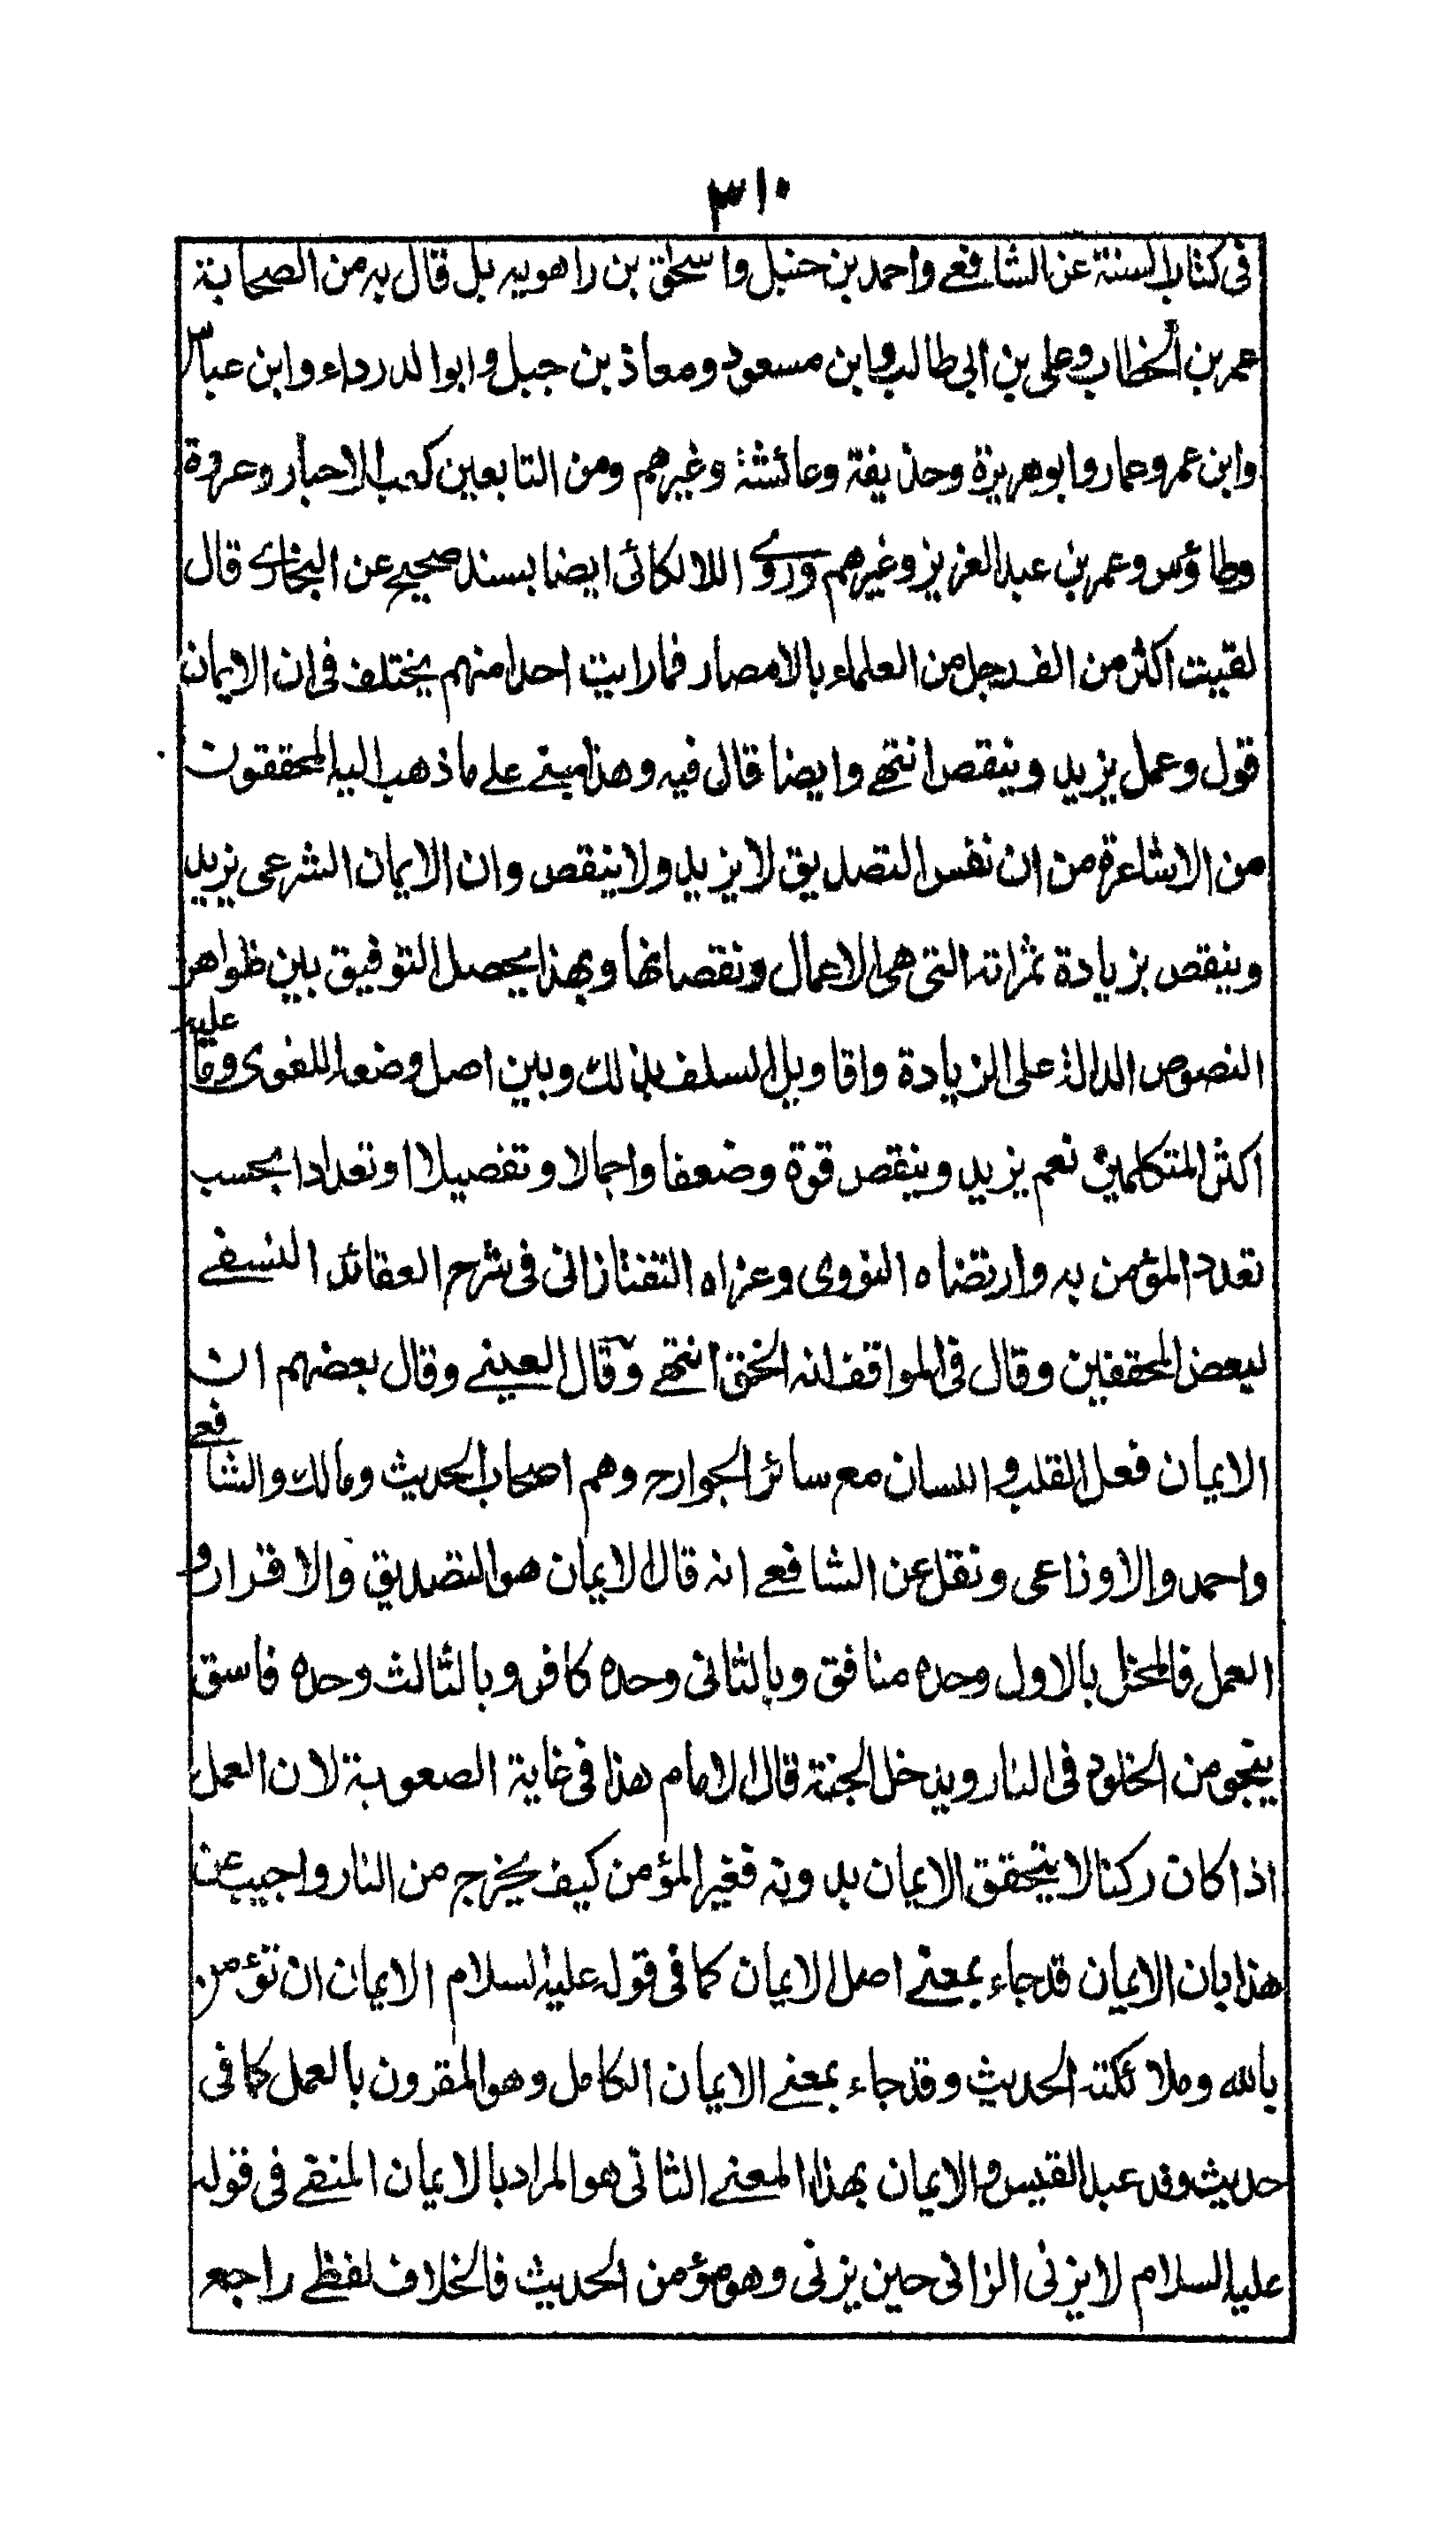 ٣١٠
فى كتاب السنة عن الشافعے واحمد بن حنبل واسحٰق بن راهويه بل قال به من الصحابة
عمر بن الخطاب وعلى بن ابى طالب وابن مسعود ومعاذ بن جبل وابو الدرداء وابن عباس
وابن عمر وعمار وابو هريرة وحذيفة وعائشة وغيرهم ومن التابعين كعب الاحبار وعروة
وطاؤس وعمر بن عبد العزيز وغيرهم وروے اللالكائى ايضا بسند صحيح عن البخارى قال
لقيت اكثر من الف رجل من العلماء بالامصار فما رايت احدا منهم يختلف فى ان الايمان
قول وعمل يزيد وينقص انتهے وايضا قال فيه وهذا مبنے علے ما ذهب اليه المحققون
من الاشاعرة من ان نفس التصديق لا يزيد ولا ينقص وان الايمان الشرعى يزيد
وينقص بزيادة ثمراته التى هى الاعمال ونقصانها وبهذا يحصل التوفيق بين ظواهر
النصوص الدالة على الزيادة واقاويل السلف بذلك وبين اصل وضعه اللغوى وما عليه
اكثر المتكلمين نعم يزيد وينقص قوة وضعفا واجمالا وتفصيلا او تعدادا بحسب
تعدد المؤمن به وارتضاه النووى وعزاه التفتازانى فى شرح العقائد النسفے
لبعض المحققين وقال فى المواقف انه الحق انتهے وقال العينے وقال بعضهم ان
الايمان فعل القلب واللسان مع سائر الجوارح وهم اصحاب الحديث ومالك والشافعے
واحمد والاوزاعى ونقل عن الشافعے انه قال الايمان هو التصديق والاقرار و
العمل فالمخل بالاول وحده منافق وبالثانى وحده كافر وبالثالث وحده فاسق
ينجو من الخلود فى النار ويدخل الجنة قال الامام هذا فى غاية الصعوبة لان العمل
اذا كان ركنا لا يتحقق الايمان بدونه فغير المؤمن كيف يخرج من النار واجيب عن
هذا بان الايمان قد جاء بمعنے اصل الايمان كما فى قوله عليه السلام الايمان ان تؤمن
بالله وملائكته الحديث وقد جاء بمعنے الايمان الكامل وهو المقرون بالعمل كما فى
حديث وفد عبد القيس والايمان بهذا المعنے الثانى هو المراد بالايمان المنفے فى قوله
عليه السلام لا يزنى الزانى حين يزنى وهو مؤمن الحديث فالخلاف لفظے راجع